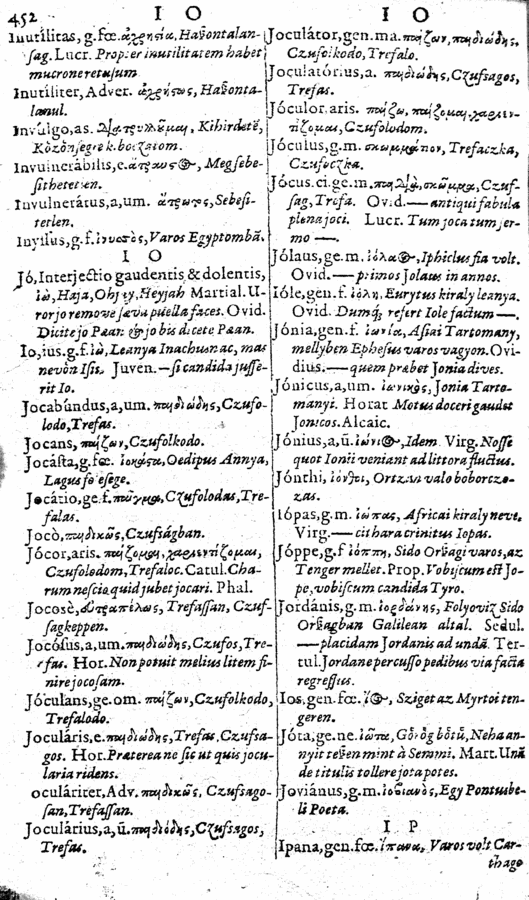 452
I O
Inutilitas, g. fœ. ἀχρησία, Haßontalan-
ság. Lucr. Propter inutilitatem habet
mucrone retusum
Inutiliter, Adver. ἀχρήστως, Haßonta-
lanul.
Invulgo, as. Kihirdetē,
Kōzōnsegre k. boczatom.
Invulnerabilis, e. ἄτρωτος, Megsebe-
sithetetlen.
Invulnerātus, a, um. ἄτρωτος, Sebesi-
tetlen.
Inyssus, g. f. Varos Egyptombā.
I O
Jó, Interjectio gaudentis, & dolentis,
ἰὼ, Haja, Oh Heyjah Martial. U-
ror jo remove sæva puella faces. Ovid.
Dicite jo Pæan & jo bis dicete Pæan.
Io, ius, g. f. ἰὼ, Leanya Inachusnac, mas
nevōn Isis. Juven. — si candida jusse-
rit Io.
Jocabúndus, a, um. παιδιώδης, Czufo-
lodo, Trefas.
Jocans, παίζων, Czufolkodo.
Jocásta, g. fœ. ἰοκάστα, Oedipus Annya,
Lagus fe esege.
Jocátio, ge. f. παῖγμα, Czufolodas, Tre-
falas.
Jocò, παιδικῶς, Czufságban.
Jócor, aris. παίζομαι, χαριεντίζομαι,
Czufolodom, Trefaloc. Catul. Cha-
rum nescio quid jubet jocari. Phal.
Jocosè, εὐτραπέλως, Trefassan, Czuf-
sagkeppen.
Jocósus, a, um. παιδιώδης, Czufos, Tre-
fas. Hor. Non potuit melius litem fi-
nire jocosam.
Jóculans, ge. om. παίζων, Czufolkodo,
Trefalodo.
Joculáris, e. παιδιώδης, Trefas, Czufsa-
gos. Hor. Præterea ne sic ut quis jocu-
laria ridens.
oculáriter, Adv. παιδικῶς, Czufsago-
san, Trefassan.
Joculárius, a, ū. παιδιώδης, Czufsagos,
Trefas.
I O
Joculátor, gen. ma. παίζων, παιδιώδης,
Czufolkodo, Trefalo.
Joculatórius, a. παιδιώδης, Czufsagos,
Trefas.
Jóculor, aris. παίζω, παίζομαι, χαριεν-
τίζομαι, Czufolodom.
Jóculus, g. m. σκωμμάτιον, Trefaczka,
Czufeczka.
Jócus, ci. ge. m. παιδιὰ, σκῶμμα, Czuf-
sag, Trefa. Ovid. — antiqui fabula
plena joci. Lucr. Tum joca tum ser-
mo —.
Jólaus, ge. m. ἰόλαος, Iphiclus fia volt.
Ovid. — primos Jolaus in annos.
Ióle, gen. f. ἰόλη, Eurytus kiraly leanya.
Ovid. Dumq; refert Iole factum —.
Jónia, gen. f. ἰωνία, Asiai Tartomany,
mellyben Ephesus varos vagyon. Ovi-
dius. — quem præbet Jonia dives.
Jónicus, a, um. ἰωνικὸς, Jonia Tarto-
manyi. Horat Motus doceri gaudet
Jonicos. Alcaic.
Jónius, a, ū. ἰώνιος, Idem. Virg. Nosse
quot Ionii veniant ad littora fluctus.
Jónthi, ἰόνθοι, Ortzan valo boborczo-
zas.
Iópas, g. m. ἰώπας, Africai kiraly neve.
Virg. — cithara crinitus Iopas.
Jóppe, g. f ἰόππη, Sido Orßagi varos, az
Tenger mellet. Prop. Vobiscum est Jo-
pe, vobiscum candida Tyro.
Jordánis, g. m. ἰορδάνης, Folyoviz Sido
Orßagban Galilean altal. Sedul.
— placidam Jordanis ad undā. Ter-
tul. Jordane percusso pedibus via facta
regressus.
Ios, gen. fœ. ἴος, Sziget az Myrtoi ten-
geren.
Jóta, ge. ne. ἰῶτα, Gōrōg bōtū, Neha an-
nyit teßen mint à Semmi. Mart. Unā
de titulis tollere jota potes.
Joviánus, g. m. ἰοβιανὸς, Egy Pontusbe-
li Poeta.
I P
Ipana, gen. fœ. ἴπανα, Varos volt Car-
thago